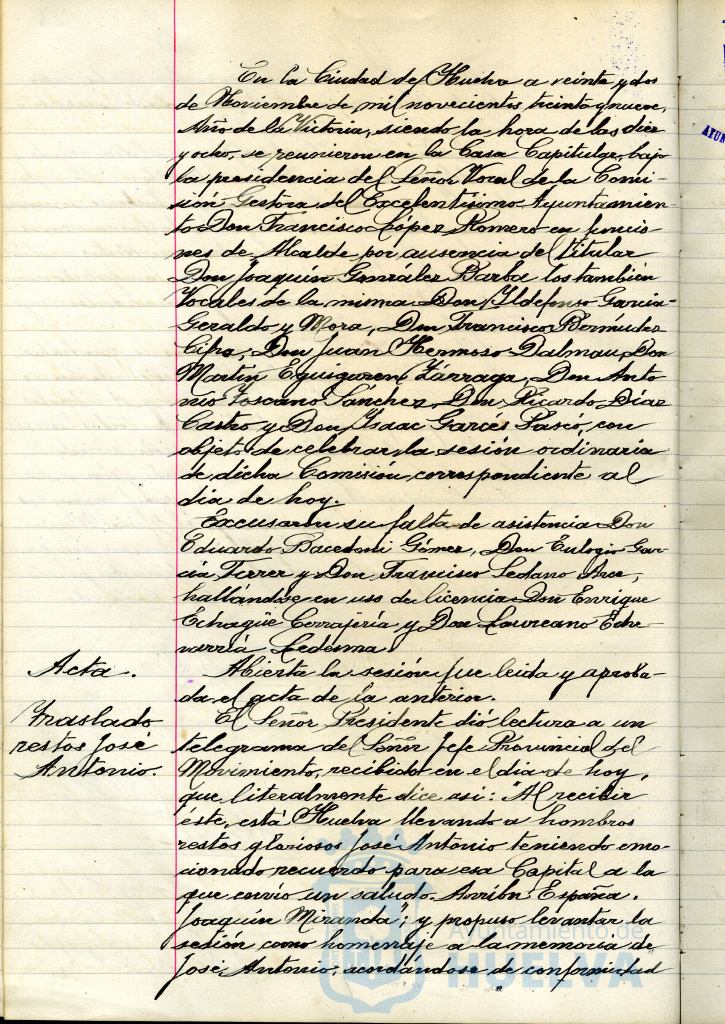 En la Ciudad de Huelva a veinte y dos
de Noviembre de mil novecientos treinta y nueve,
Año de la Victoria, siendo la hora de las diez
y ocho, se reunieron en la Casa Capitular, bajo
la presidencia del Señor Vocal de la Comi-
sión Gestora del Excelentísimo Ayuntamien-
to Don Francisco López Romero en funcio-
nes de Alcalde por ausencia del titular
Don Joaquín González Barba los también
Vocales de la misma Don Ildefonso García-
Geraldo y Mora, Don Francisco Bermúdez
Cipo, Don Juan Hermoso Dalmau, Don
Martín Eguiguren Zárraga, Don Anto
nio Toscano Sánchez, Don Ricardo Díaz
Castro y Don Isaac Garcés Pascó, con
objeto de celebrar la sesión ordinaria
de dicha Comisión, correspondiente al
dia de hoy.
Excusaron su falta de asistencia Don
Eduardo Gómez, Don Eulogio Gar-
cía Ferrer y Don Francisco Sedano Arce,
hallándose en uso de licencia Don Enrique
Echagüe Cerrajería y Don Laureano Eche
varría Ledesma.
Acta.
Abierta la sesión fue leida y aproba-
da el acta de la anterior.
Traslado
restos José
Antonio.
El Señor Presidente dió lectura a un
telegrama del Señor Jefe Provincial del
Movimiento, recibido en el día de hoy,
que literalmente dice asi: "Al recibir
éste, está Huelva llevando a hombros
restos gloriosos José Antonio teniendo emo-
cionado recuerdo para esa Capital a la
que envío un saludo. Arriba España.
Joaquín Miranda"; y propuso levantar la
sesión como homenaje a la memoria de
José Antonio, acordándose de conformidad
Ayuntamiento de
HUELVA